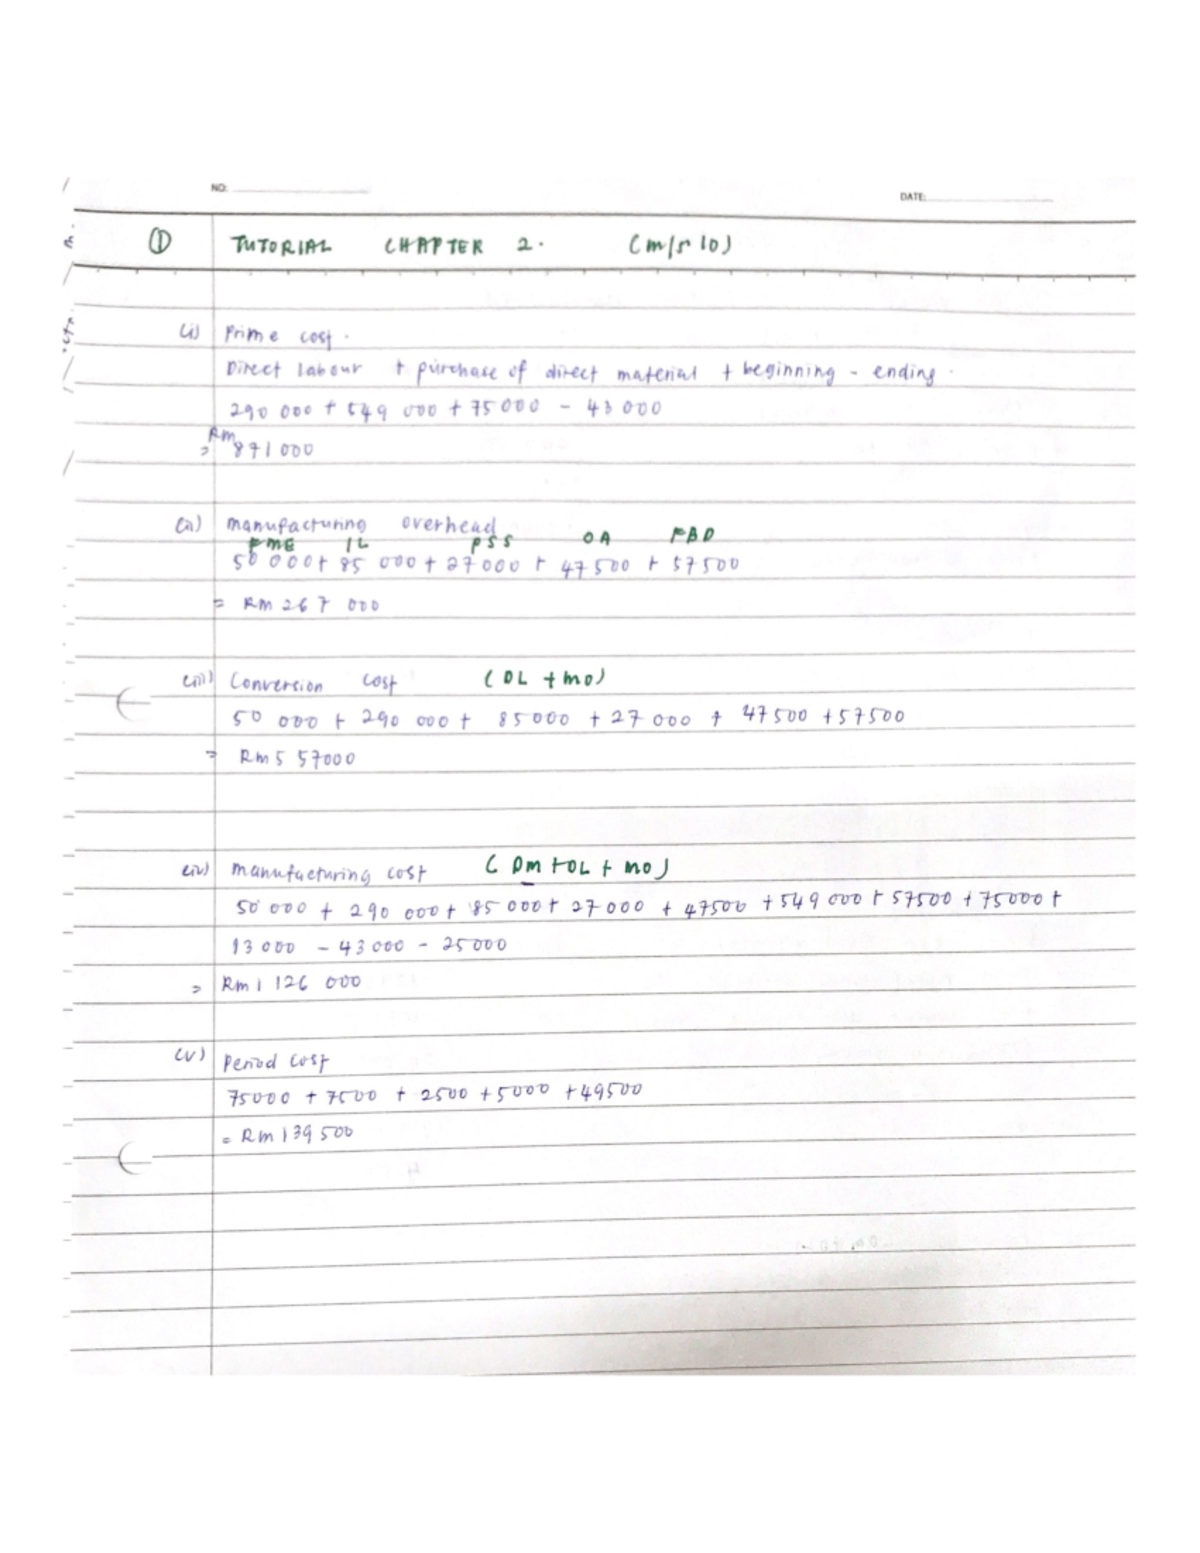 NO:
DATE:
① TUTORIAL CHAPTER 2. (m/s 10)
(i) Prime cost.
Direct labour + purchase of direct material + beginning - ending.
290 000 + 549 000 + 75000 - 43 000
= Rm 871 000
(ii) manufacturing overhead
FME IL PSS OA FBD
50 000 + 85 000 + 27000 + 47500 + 57500
= Rm 267 000
(iii) Conversion cost (DL + mo)
50 000 + 290 000 + 85000 + 27 000 + 47500 + 57500
= Rm 5 57000
(iv) manufacturing cost (Dm + DL + mo)
50 000 + 290 000 + 85 000 + 27 000 + 47500 + 549 000 + 57500 + 75000 +
13 000 - 43 000 - 25000
= Rm 1 126 000
(v) Period cost
75000 + 7500 + 2500 + 5000 + 49500
= Rm 139 500